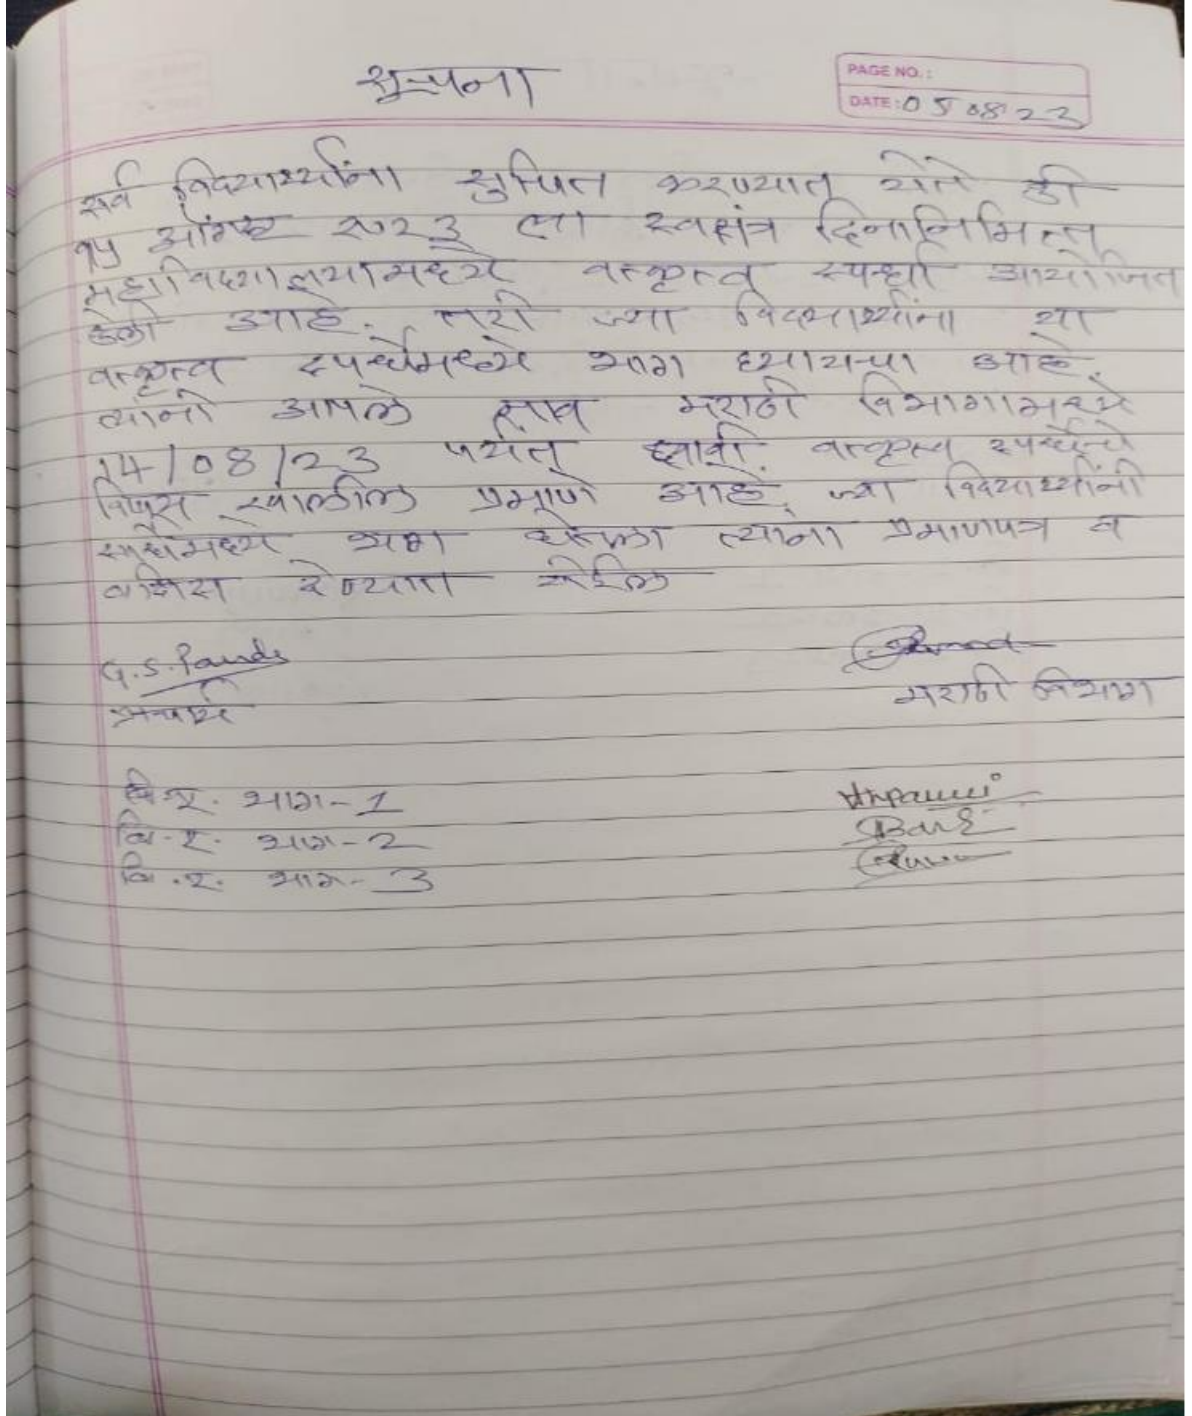 सूचना
PAGE NO.:
DATE: 05 08 23
सर्व विद्यार्थ्यांना सुचित करण्यात येते की
१५ ऑगस्ट २०२३ ला स्वतंत्र दिनानिमित्त
महाविद्यालयामध्ये वक्तृत्व स्पर्धा आयोजित
केली आहे. तरी ज्या विद्यार्थ्यांना या
वक्तृत्व स्पर्धेमध्ये भाग घ्यायचा आहे.
त्यांनी आपले नाव मराठी विभागामध्ये
14/08/23 पर्यंत द्यावी. वक्तृत्व स्पर्धेचे
विषय खालील प्रमाणे आहे. ज्या विद्यार्थ्यांनी
स्पर्धेमध्ये भाग घेतला त्यांना प्रमाणपत्र व
बक्षिस देण्यात येईल
G.S.
प्राचार्य
मराठी विभाग
बि.ए. भाग-1
बि.ए. भाग-2
बि.ए. भाग-3